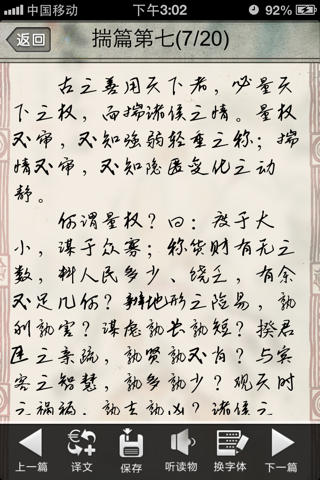 中国移动 下午3:02 92%
返回 揣篇第七(7/20)
古之善用天下者，必量天
下之权，而揣诸侯之情。量权
不审，不知强弱轻重之称；揣
情不审，不知隐匿变化之动
静。
何谓量权？曰：度于大
小，谋于众寡；称货财有无之
数，料人民多少、饶乏，有余
不足几何？辨地形之险易，孰
利孰害？谋虑孰长孰短？揆君
臣之亲疏，孰贤孰不肖？与宾
客之智慧，孰多孰少？观天时
之祸福，孰吉孰凶？诸侯之
上一篇 译文 保存 听读物 换字体 下一篇